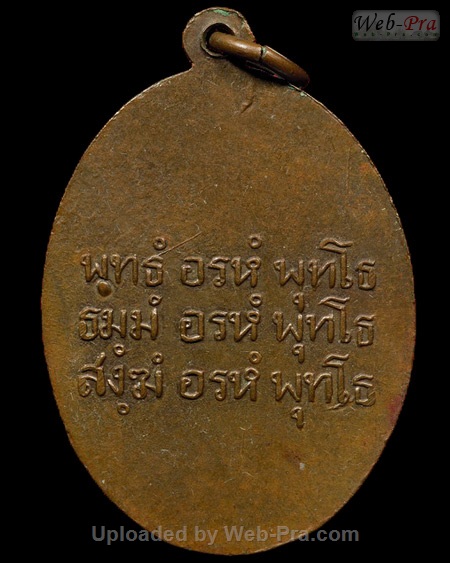 Web-Pra
Web-Pra.com
พุทธํ อรหํ พุทโธ
ธมฺมํ อรหํ พุทโธ
สงฺฆํ อรหํ พุทโธ
Uploaded by Web-Pra.com